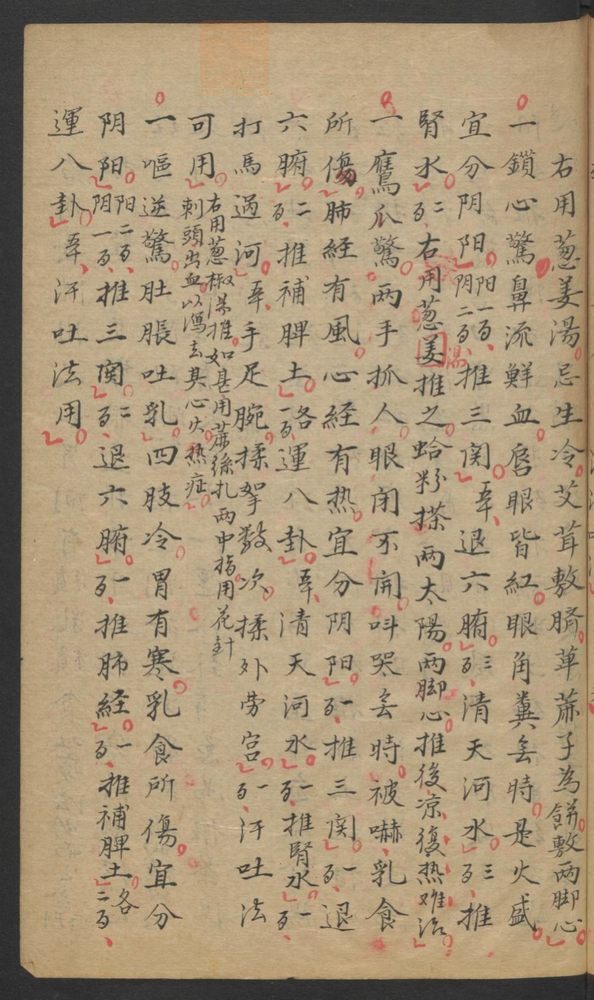 右用葱姜湯忌生冷艾茸敷臍萆蔴子為餅敷两脚心
一鎖心驚鼻流鮮血唇眼皆紅眼角糞多時是火盛
宜分阴阳阳一百阴二百推三関五十退六腑三百清天河水三百推
腎水二百右用葱姜湯推之蛤粉搽两太陽两脚心推後凉復热难治
一鷹爪驚两手抓人眼闭不開呌哭多時被嚇乳食
所傷肺經有風心経有热宜分阴阳一百推三関一百退
六腑二百推補脾土各一百運八卦五十清天河水一百推腎水一百
打馬過河五十手足腕揉拏数次揉外劳宫一百汗吐法
可用右用葱椒湯推如甚用蔴絲扎两中指用花針
刺頭出血以瀉去其心火热症
一嘔逆驚肚脹吐乳四肢冷胃有寒乳食所傷宜分
阴阳阳二百阴一百推三関二百退六腑一百推肺経一百推補脾土各二百
運八卦五十汗吐法用